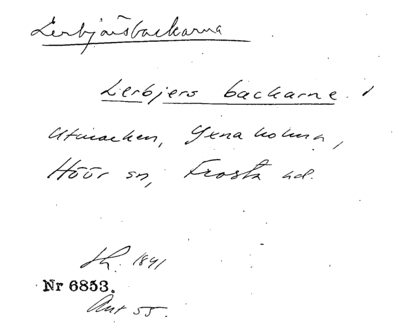 Lerbjärsbackarna
Lerbjers backarne.
Utmarken, Yxnaholma,
Höör sn, Frosta hd.
Sk. 1841
Nr 6853.
Akt 55.